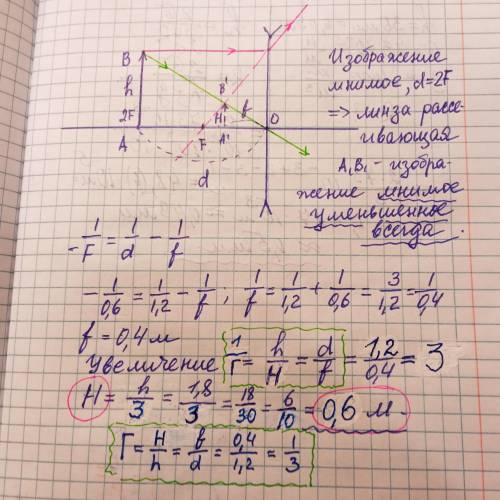 B
h
2F
A
B'
H₁
f
F
A'
O
d
Изображение
мнимое, d=2F
=> линза рассе-
ивающая
A₁B₁ - изобра-
жение мнимое
уменьшенное
всегда.
-1/F = 1/d - 1/f
-1/0,6 = 1/1,2 - 1/f ; 1/f = 1/1,2 + 1/0,6 = 3/1,2 = 1/0,4
f = 0,4 м
Увеличение 1/Г = h/H = d/f = 1,2/0,4 = 3
H = h/3 = 1,8/3 = 18/30 = 6/10 = 0,6 м.
Г = H/h = f/d = 0,4/1,2 = 1/3